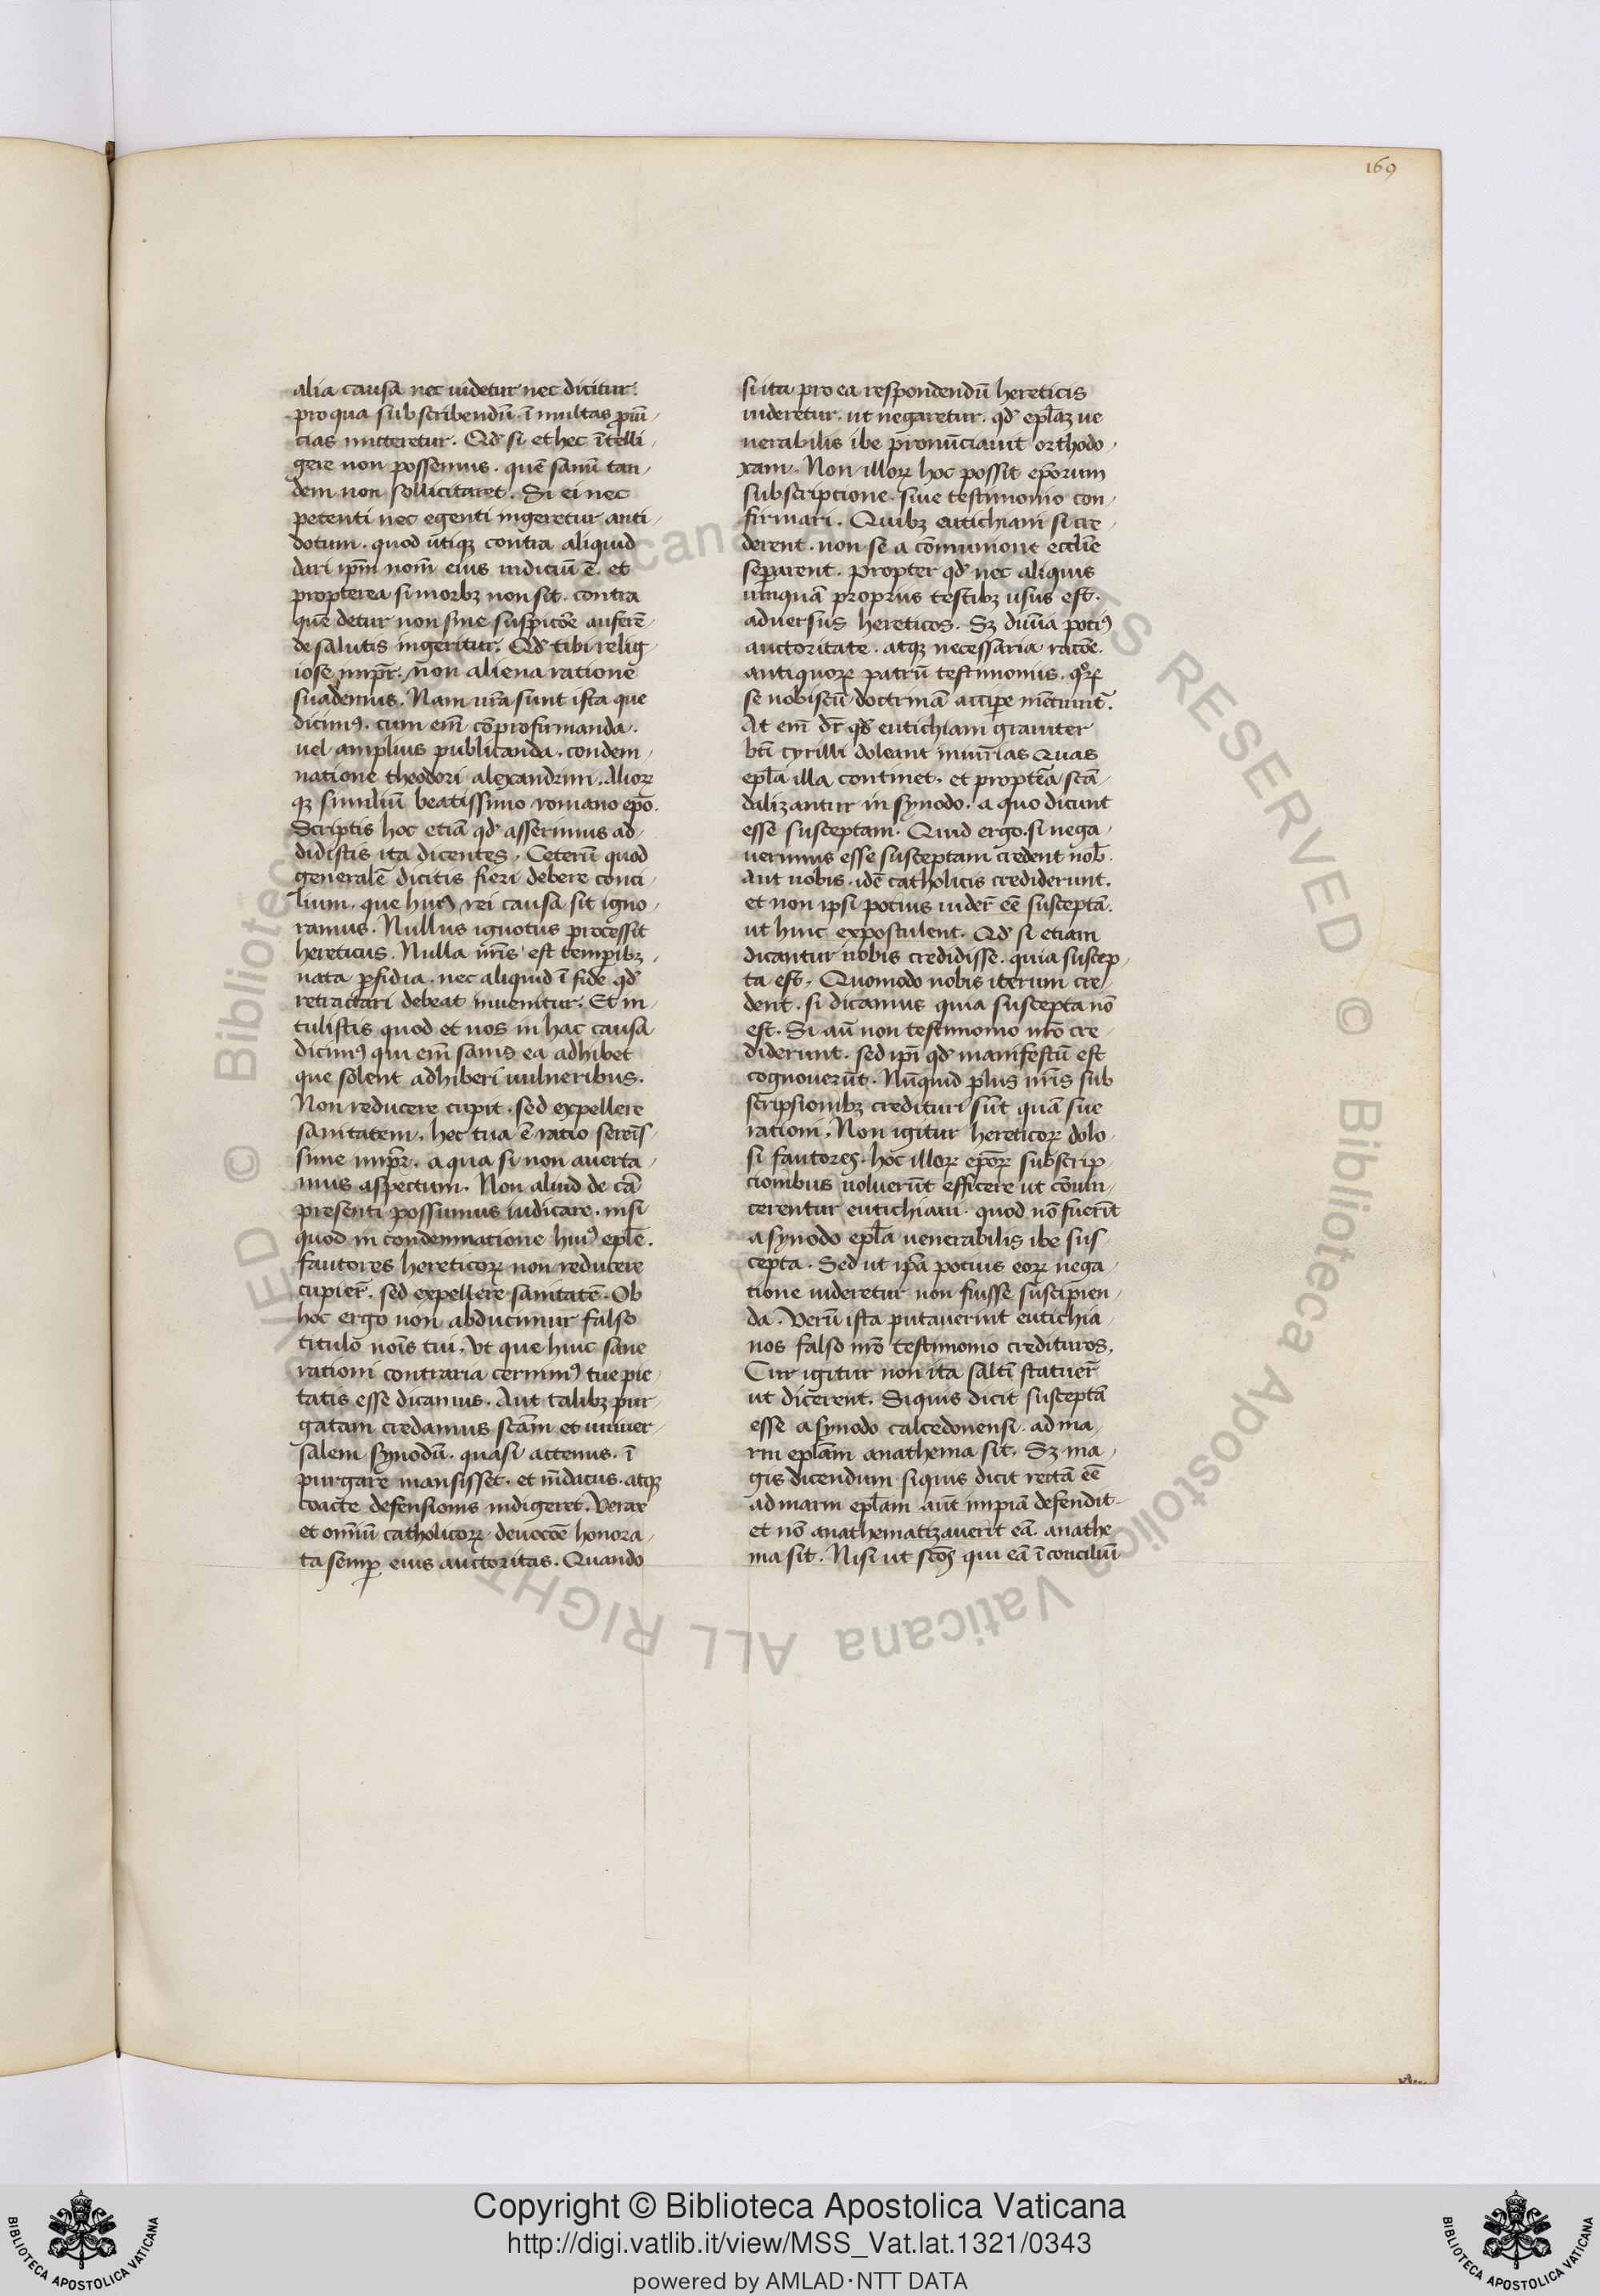 169
alia causa nec uidetur nec dicitur.
pro qua subscribendū. ī multas ꝓuī
cias mitteretur. Qđ si et hec ītelli
gere non possemus. quē sanū tan
dem non sollicitaret. Si ei nec
petenti nec egenti ingeretur anti
dotum. quod utiqꝫ contra aliquid
dari ip̄m nom̄ eius indiciū ē. et
propterea si morbꝫ non sit. contra
quē detur non sine suspicōe auferē
de salutis ingeritur. Qđ tibi relig
iose imp̄r. non aliena ratione
suademus. Nam ur̄a sunt ista que
dicimꝰ. cum em̄ cōprofirmanda.
uel amplius publicanda. condem
natione theodori alexandrini. Alioꝝ
qꝫ similiū beatissimo romano ep̄o.
Scriptis hoc etiā qđ asserimus ad
didistis ita dicentes. Ceterū quod
generalē dicitis fieri debere conci
lium. que huiꝰ rei causa sit igno
ramus. Nullus ignotus processit
hereticus. Nulla nr̄is est temporibꝫ
nata ꝑfidia. nec aliquid ī fide qđ
retractari debeat inuenitur. Et in
tulistis quod et nos in hac causa
dicimꝰ qui em̄ sanis ea adhibet
que solent adhiberi uulneribus.
Non reducere cupit. sed expellere
sanitatem. hec tua ē ratio sereīs
sime imp̄r. a qua si non auerta
mus aspectum. Non aliud de cā
presenti possumus iudicare. nisi
quod in condemnatione huiꝰ epl̄e.
fautores hereticoꝝ non reducere
cupier̄. sed expellere sanitatē. Ob
hoc ergo non abducimur falso
titulo nōīs tui. Vt que huic sane
rationi contraria cernimꝰ tue pie
tatis esse dicamus. Aut talibꝫ pur
gatam credamus sc̄am et uniuer
salem synodū. quasi actenus. ī
purgare mansisset. et m̄datus. atqꝫ
coacte defensionis indigeret. Verax
et om̄iū catholicoꝝ deuocōe honora
ta semꝑ eius auctoritas. Quando
si ita pro ea respondendū hereticis
uideretur. ut negaretur. qđ epl̄aꝫ ue
nerabilis ibe pronūciauit orthodo
xam. Non illoꝝ hoc possit ep̄orum
subscriptione. siue testimonio con
firmari. Quibꝫ eutichiani si cre
derent. non se a cōmunione eccl̄ie
separent. Propter qđ nec aliquis
umquā proprius testibꝫ usus est.
aduersus hereticos. Sꝫ diuīa potiꝰ
auctoritate. atqꝫ necessaria racōe.
antiquoꝝ patrū testimoniis. qͦꝝ
se nobiscū doctrinā accipe m̄tiunt̄.
At em̄ dr̄ qđ eutichiani grauiter
bt̄i cyrilli doleant iniur̄ias Quas
epl̄a illa continet. et propt̄ea scā
dalizantur in synodo. a quo dicunt
esse susceptam. Quid ergo. si nega
uerimus esse susceptam credent nob̄.
Aut uobis. idē catholicis crediderunt.
et non ipsi potius uider̄ eē susceptā.
ut hinc expostulent. Qđ si etiam
dicantur nobis credidisse. quia suscep
ta est. Quomodo nobis iterum cre
dent. si dicamus quia suscepta nō
est. Si aū non testimonio nr̄o cre
diderunt. sed ip̄i qđ manifestū est
cognouerūt. Nūquid plus nr̄is sub
scripsionibꝫ credituri sūt quā sue
rationi. Non igitur hereticoꝝ dolo
si fautores. hoc illoꝝ ep̄oꝝ subscrip
cionibus uoluerūt efficere ut cōuin
cerentur eutichiani. quod nō fuerit
a synodo epl̄a uenerabilis ibe sus
cepta. Sed ut ip̄a potius eoꝝ nega
tione uideretur non fuisse suscipien
da. Verū ista putauerint eutichia
nos falso nr̄o testimonio credituros.
Cur igitur non ita saltī statuer̄
ut dicerent. Siquis dicit susceptā
esse a synodo calcedonensi. ad ma
rin epl̄am anathema sit. Sꝫ ma
gis dicendum. siquis dicit rectā eē
ad marin epl̄am aut̄ impiā defendit
et nō anathematizauerit eā. anathe
ma sit. Nisi ut sc̄os qui eā ī conciliū
Copyright © Biblioteca Apostolica Vaticana
http://digi.vatlib.it/view/MSS_Vat.lat.1321/0343
powered by AMLAD·NTT DATA
BIBLIOTECA APOSTOLICA VATICANA
BIBLIOTECA APOSTOLICA VATICANA
© Biblioteca Apostolica Vaticana ALL RIGHTS RESERVED